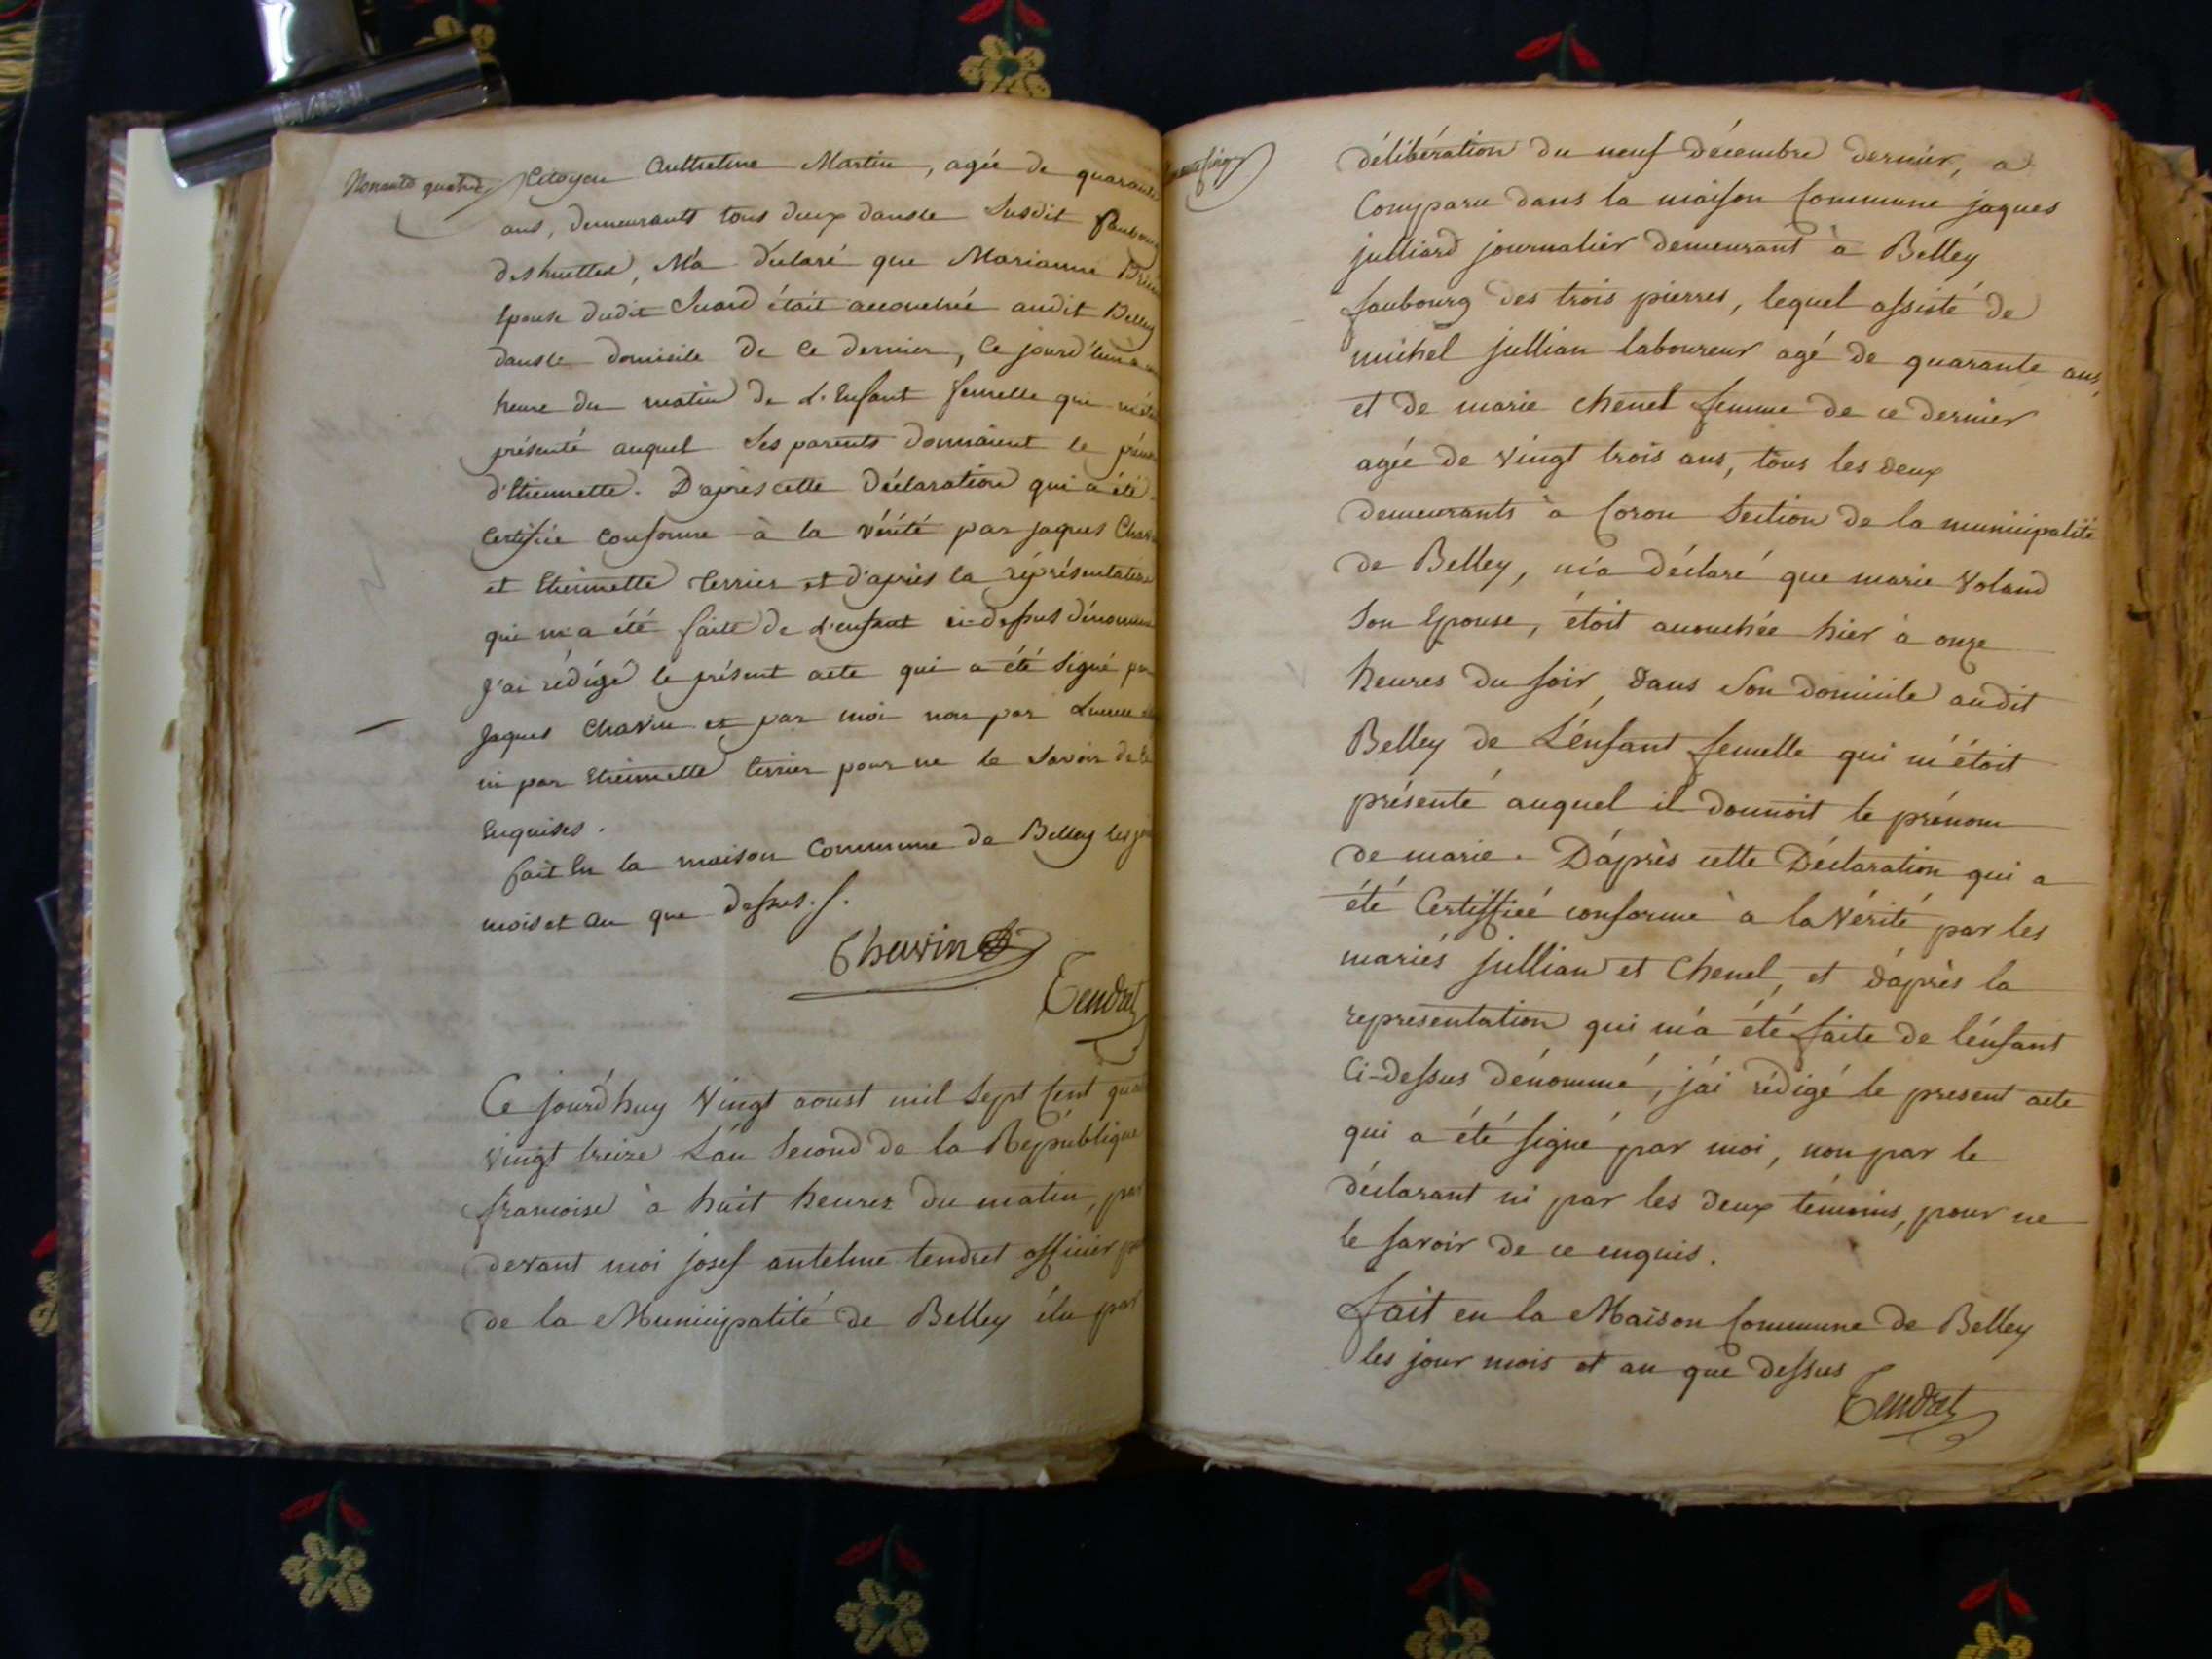 Nonante quatre
Citoyen Anthelme Martin, agée de quarante
ans, demeurants tous deux dans le susdit faubourg
des huittes, M'a déclaré que Marianne
Epouse dudit Suard était accouchée audit Belley
dans le domicile de ce dernier, ce jourd'hui à
heure du matin de L'Enfant femelle qui
présenté auquel ses parents donnaient le
d'Etiennette. D'après cette Déclaration qui a été
Certifiée conforme à la vérité par jaques
et Etiennette terrier et d'après la représentation
qui m'a été faite de L'enfant ci-dessus dénommé
J'ai rédigé le présent acte qui a été signé par
jaques Chavin et par moi non par
ni par Etiennette terrier pour ne le savoir de ce
Enquises.
fait En la maison Commune de Belley les
mois et an que dessus. /.
Chavin
Tendret
Ce jourd'huy Vingt aoust mil sept cent
vingt treize L'an second de la République
francoise à huit heures du matin, par
devant moi josef antelme tendret officier
de la Municipalité de Belley élu par
délibération du neuf décembre dernier, a
Comparu dans la maison Commune jaques
julliard journalier demeurant à Belley
faubourg des trois pierres, lequel assisté de
michel jullian laboureur agé de quarante ans,
et de marie chenel femme de ce dernier
agée de vingt trois ans, tous les deux
demeurants à Coron Section de la municipalité
de Belley, m'a déclaré que marie Voland
Son Epouse, étoit acouchée hier à onze
heures du soir, dans Son domicile audit
Belley de L'énfant femelle qui m'étoit
présenté auquel il donnoit le prénom
de marie. D'après cette Déclaration qui a
été Certiffieé conforme à la Vérité par les
mariés jullian et Chenel, et d'après la
representation qui m'a été faite de l'énfant
Ci-dessus dénommé, j'ai rédigé le present acte
qui a été signé par moi, non par le
déclarant ni par les deux témoins, pour ne
le savoir de ce enquis.
fait en la Maison Commune de Belley
les jour mois et an que dessus
Tendret